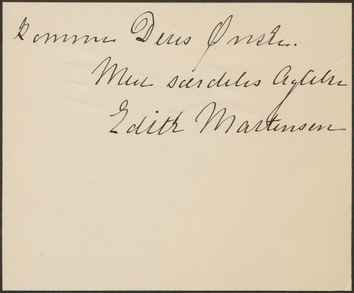 komme Deres Ønske.
Med særdeles Agtelse
Edith Martensen